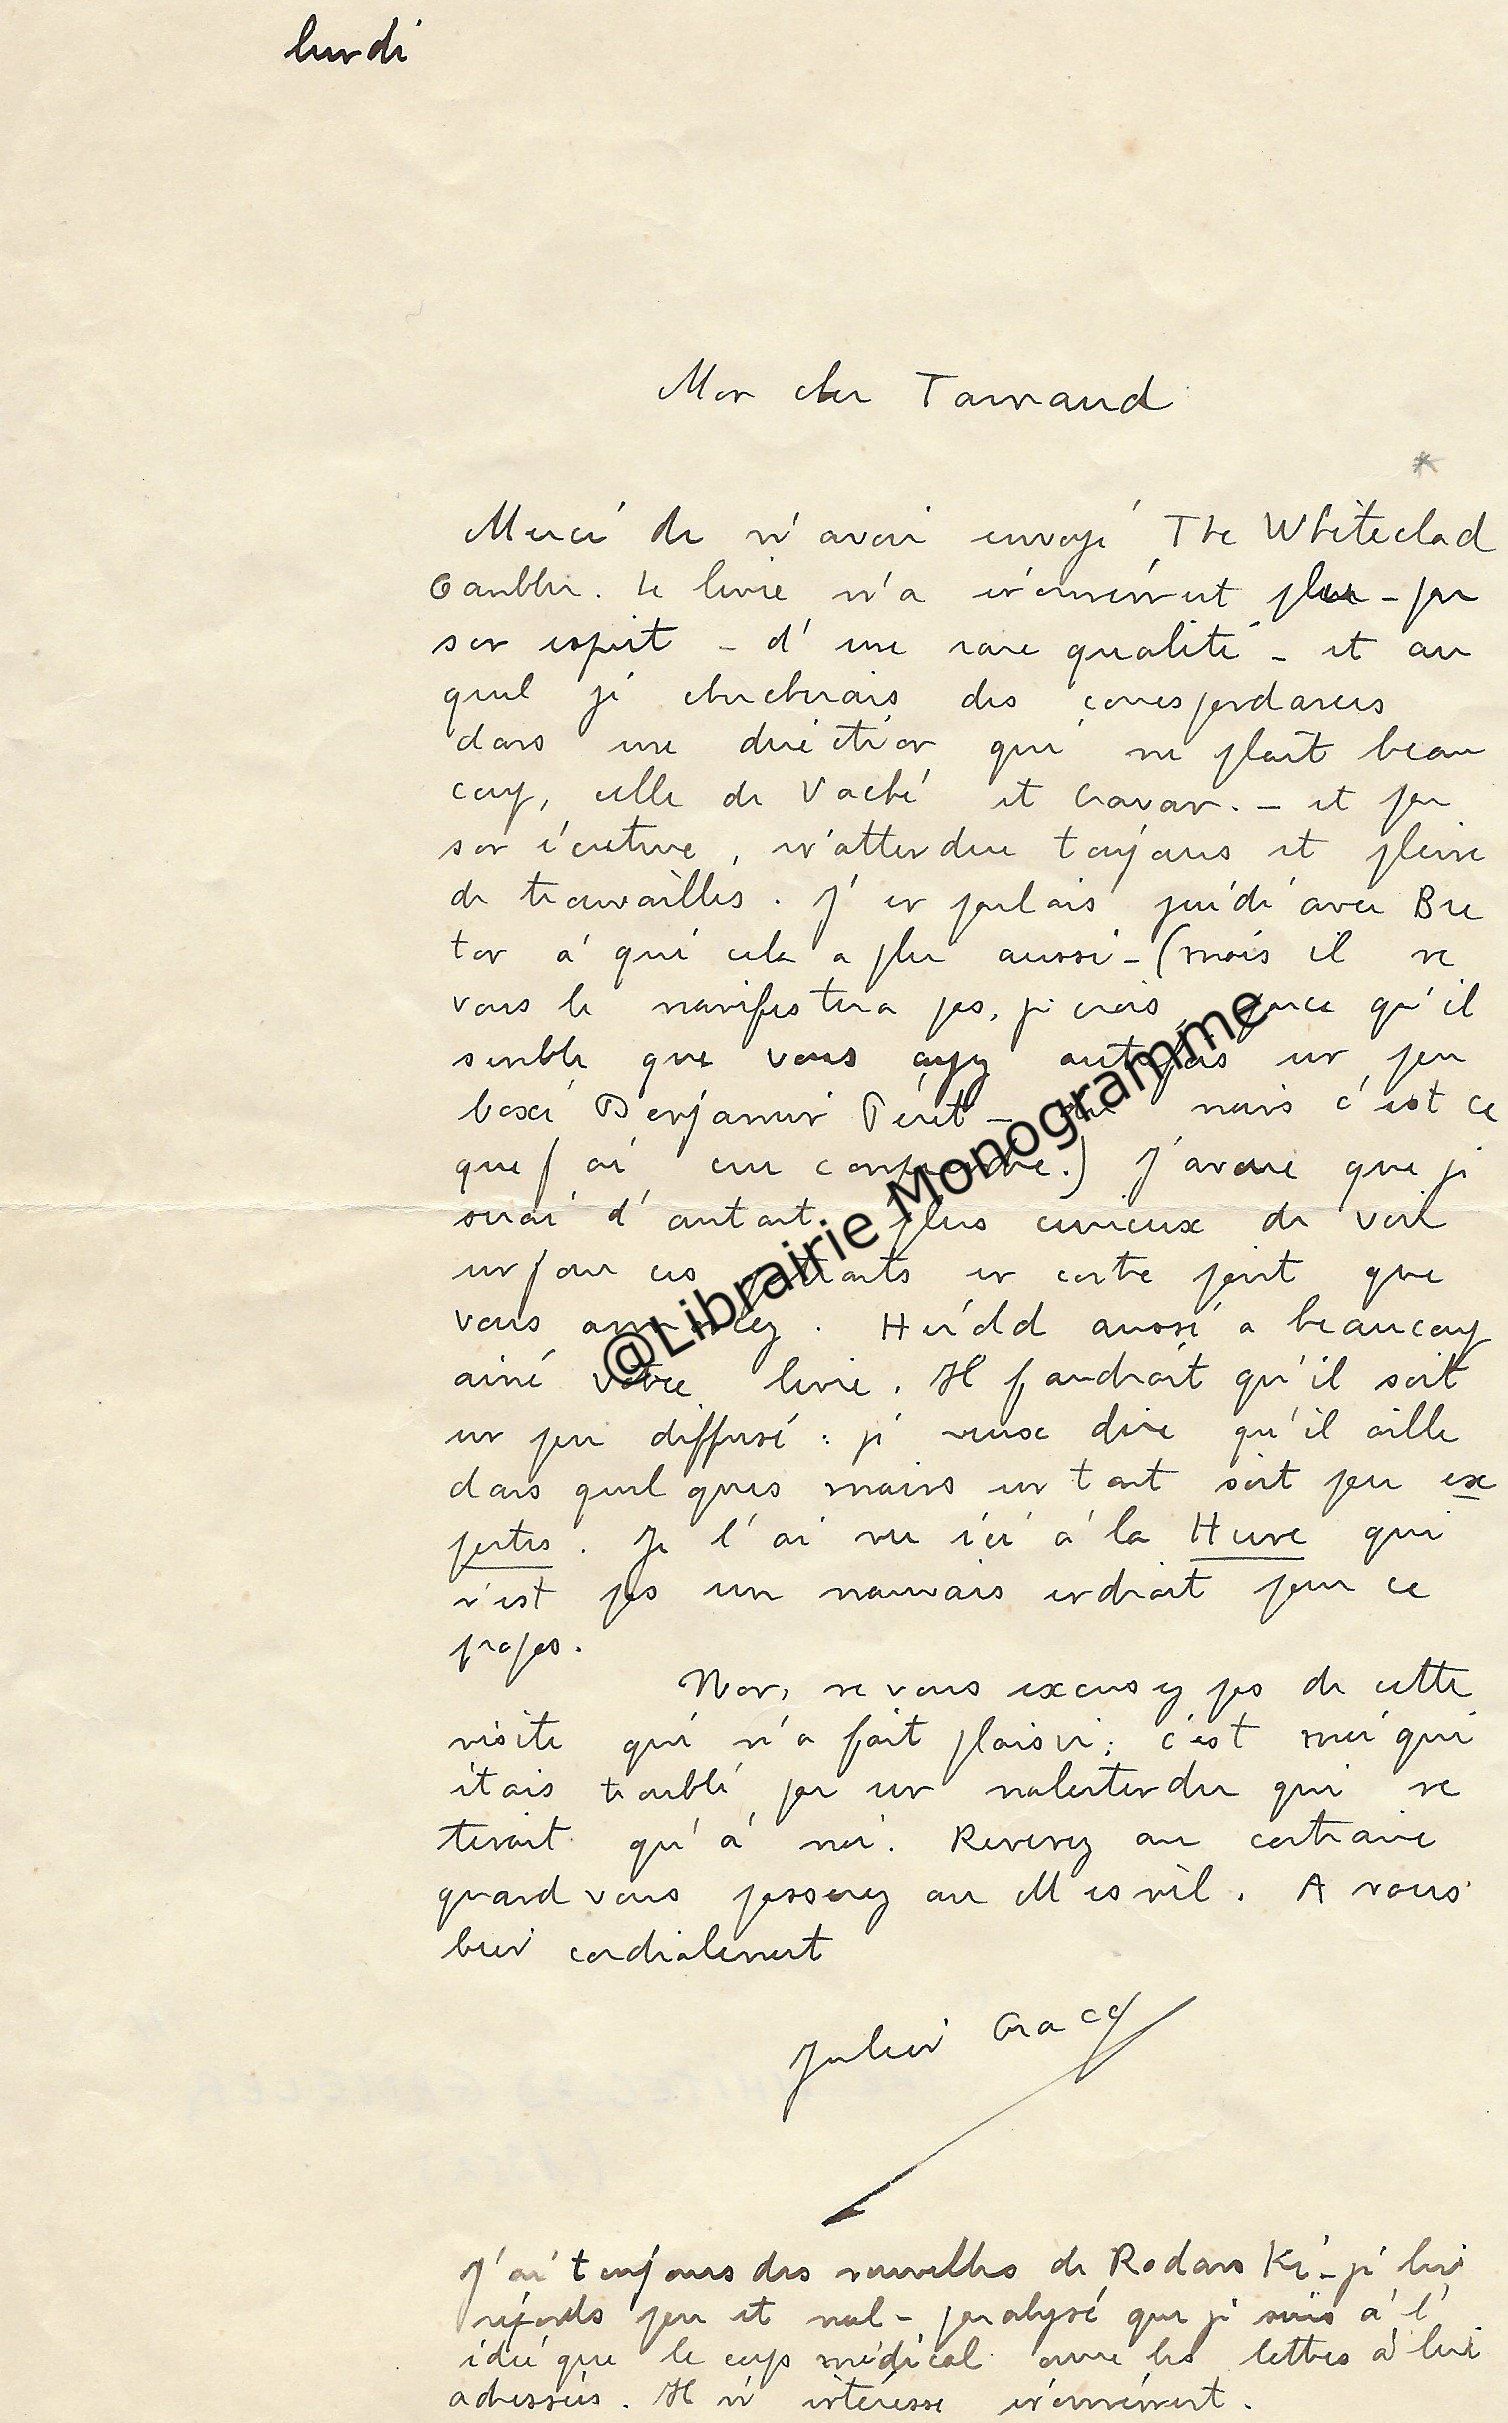 lundi
Mon cher Tarnaud
Merci de m'avoir envoyé The Whiteclad
Gambler. Le livre m'a énormément plu - par
son esprit - d'une rare qualité - et au
quel je chercherais des correspondances
dans une direction qui me plaît beau
coup, celle de Vaché et Cravan. - et par
son écriture, inattendue toujours et pleine
de trouvailles. J'en parlais jeudi avec Bre
ton à qui cela a plu aussi - (mais il ne
vous le manifestera pas, je crois, parce qu'il
semble que vous ayez autrefois un peu
boxé Benjamin Péret - mais c'est ce
que j'ai cru comprendre.) J'avoue que je
serai d'autant plus curieux de voir
un jour ces portraits en contre point que
vous annoncez. Heidd aussi a beaucoup
aimé votre livre. Il faudrait qu'il soit
un peu diffusé : je veux dire qu'il aille
dans quelques mains un tant soit peu ex
pertes. Je l'ai vu ici à la Hune qui
n'est pas un mauvais endroit pour ce
propos.
Non, ne vous excusez pas de cette
visite qui m'a fait plaisir ; c'est moi qui
étais troublé par un malentendu qui ne
tenait qu'à moi. Revenez au contraire
quand vous passerez au Mesnil. A vous
bien cordialement
Julien Gracq
J'ai toujours des nouvelles de Rodanski - je lui
réponds peu et mal - paralysé que je suis à l'
idée que le corps médical ouvre les lettres à lui
adressées. Il m'intéresse énormément.
@Librairie Monogramme